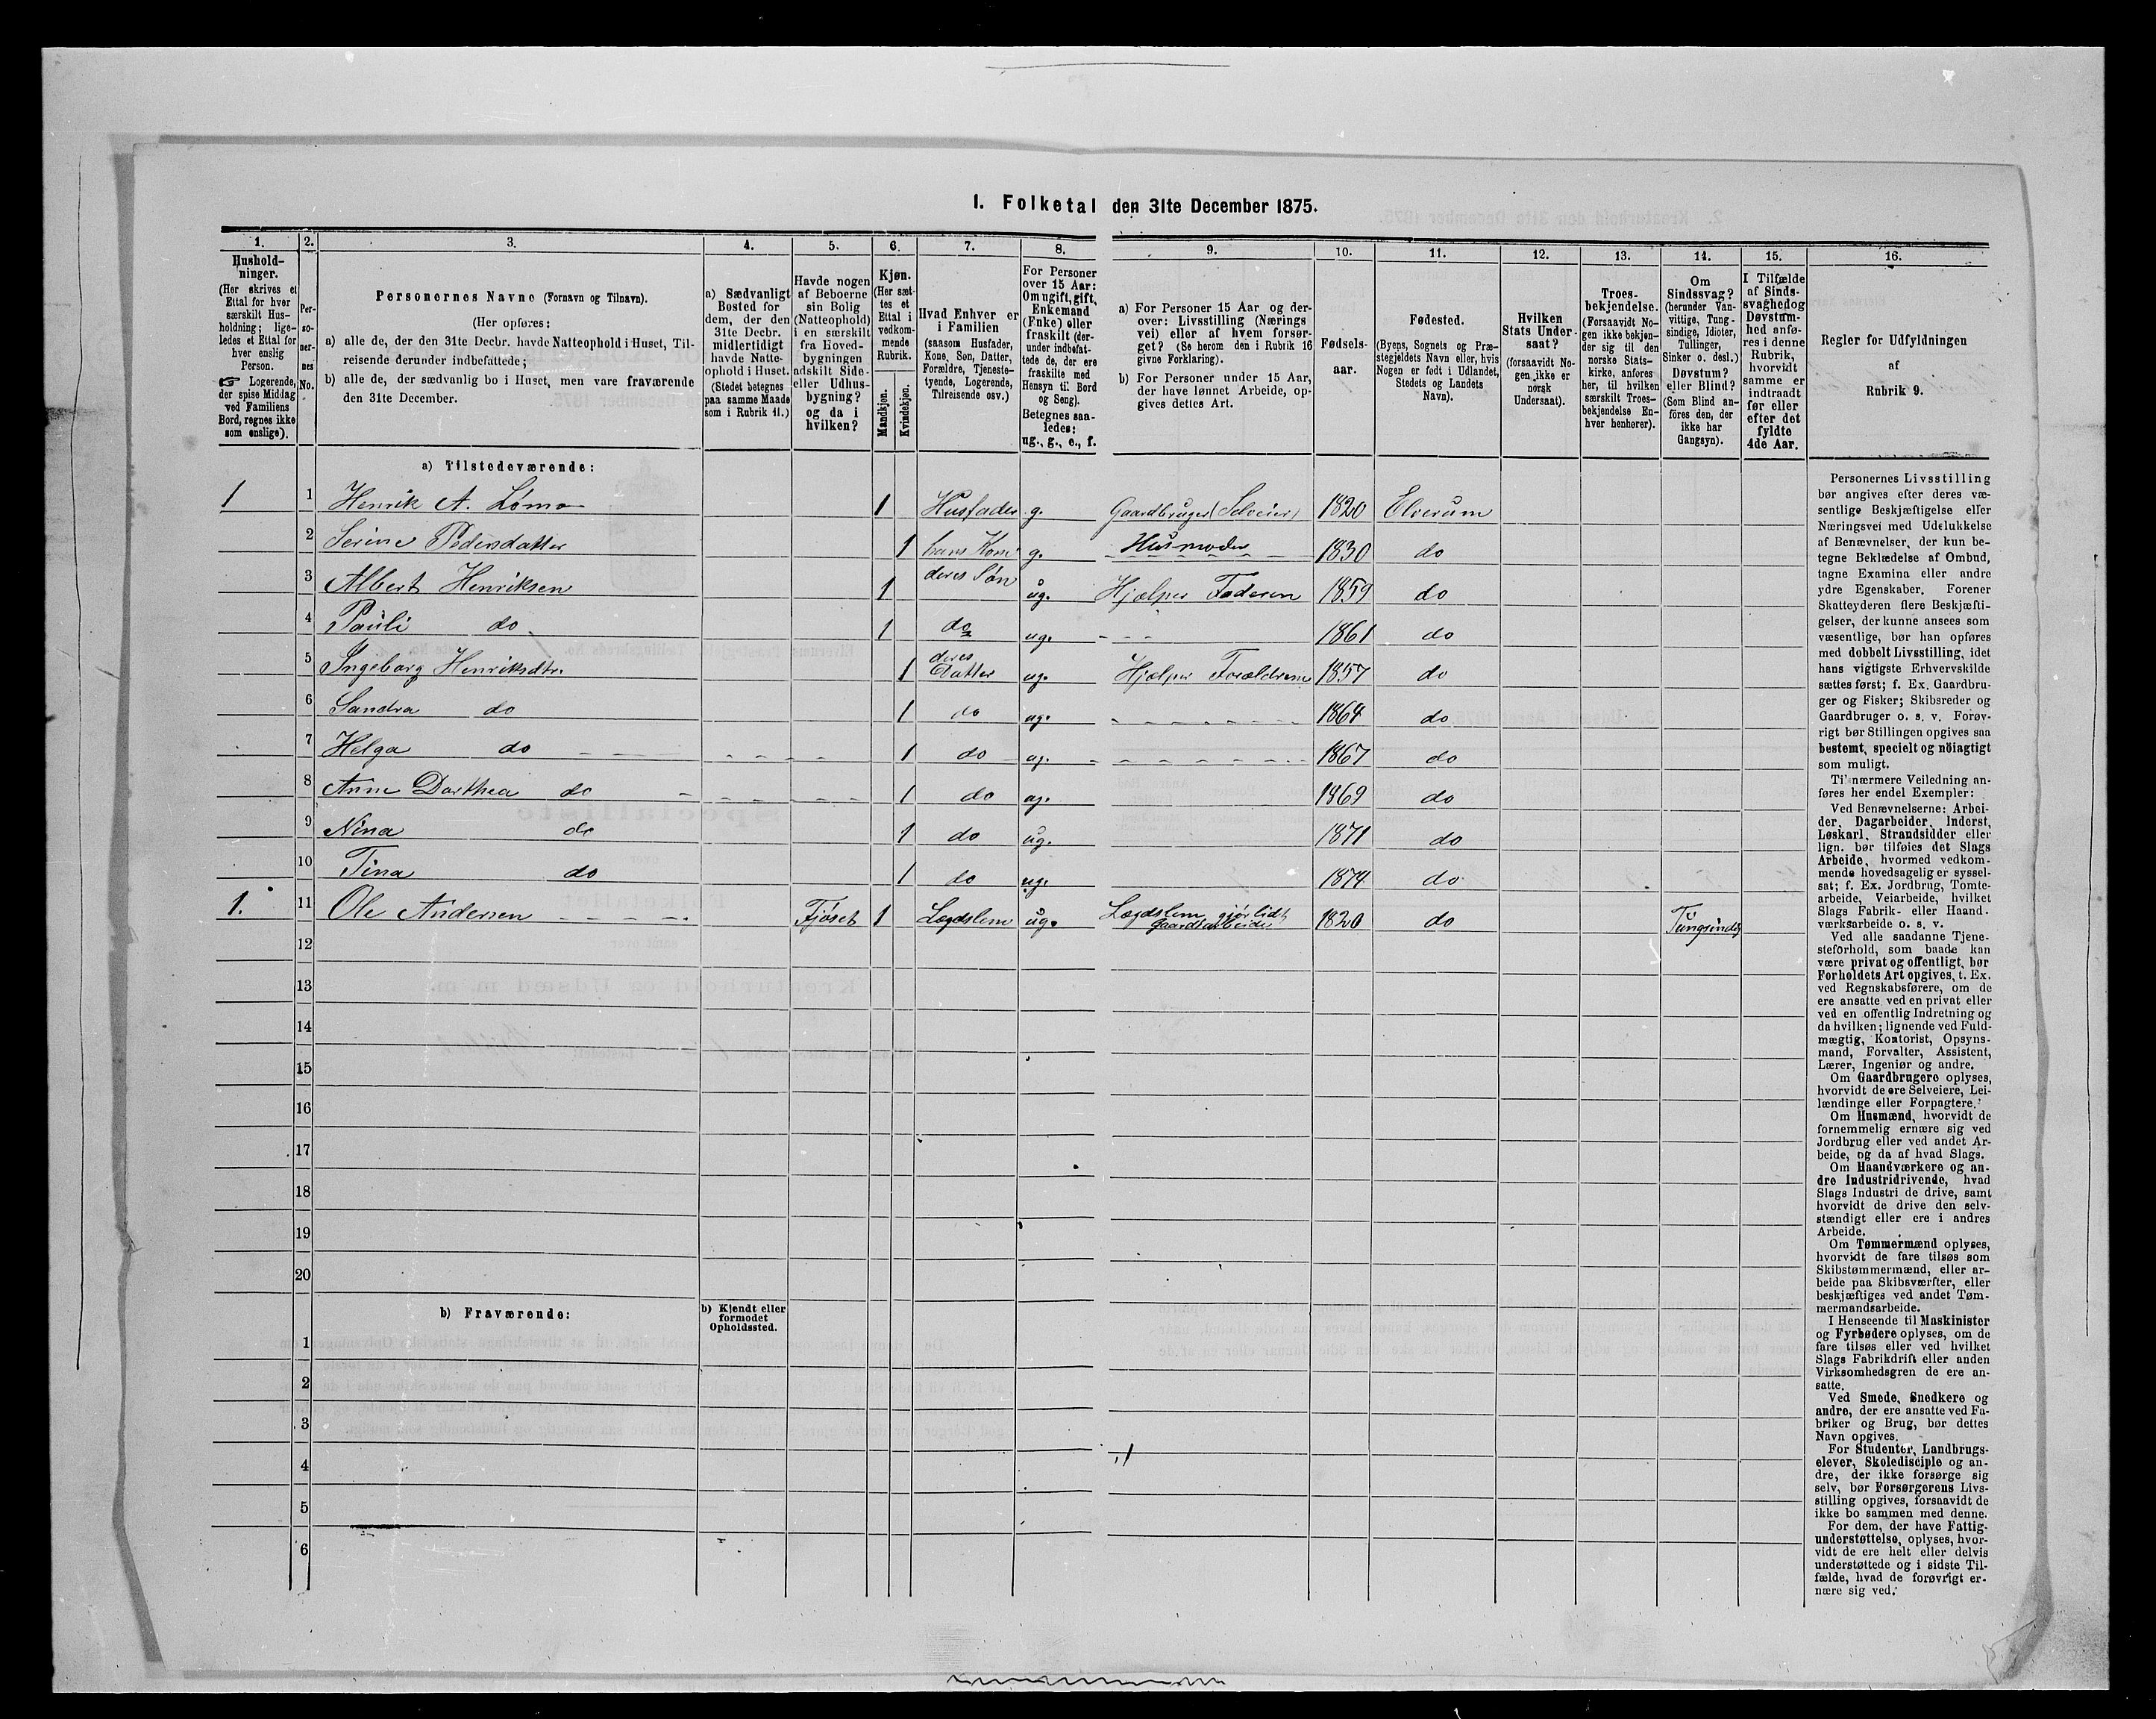 1. Folketal den 31te December 1875.
1. 2. 3. 4. 5. 6. 7. 8. 9. 10. 11. 12. 13. 14. 15. 16.
Hushold-
ninger.
(Her skrives et
Ettal for hver
særskilt Hus-
holdning; lige-
ledes et Ettal for
hver enslig
Person.
☞ Logerende,
der spise Middag
ved Familiens
Bord, regnes ikke
som enslige).
Per-
so-
ner-
nes
No.
Personernes Navne (Fornavn og Tilnavn).
(Her opføres:
a) alle de, der den 31te Decbr. havde Natteophold i Huset, Til-
reisende derunder indbefattede;
b) alle de, der sædvanlig bo i Huset, men vare fraværende
den 31te December.
a) Sædvanligt
Bosted for
dem, der den
31te Decbr.
midlertidigt
havde Natte-
ophold i Huset.
(Stedet betegnes
paa samme Maade
som i Rubrik 11.)
Havde nogen
af Beboerne
sin Bolig
(Natteophold)
i en særskilt
fra Hoved-
bygningen
adskilt Side-
eller Udhus-
bygning?
og da i
hvilken?
Kjøn.
(Her sæt-
tes et
Ettal i
vedkom-
mende
Rubrik.
Mandkjøn.
Kvindekjøn.
Hvad Enhver er
i Familien
(saasom Husfader,
Kone, Søn, Datter,
Forældre, Tjeneste-
tyende, Logerende,
Tilreisende osv.)
For Personer
over 15 Aar:
Om ugift, gift,
Enkemand
(Enke) eller
fraskilt (der-
under indbefat-
tede de, der ere
fraskilte med
Hensyn til Bord
og Seng).
Betegnes saa-
ledes:
ug., g., e., f.
a) For Personer 15 Aar og der-
over: Livsstilling (Nærings
vei) eller af hvem forsør-
get? (Se herom den i Rubrik 16
givne Forklaring).
b) For Personer under 15 Aar,
der have lønnet Arbeide, op-
gives dettes Art.
Fødsels-
aar.
Fødested.
(Byens, Sognets og Præ-
stegjeldets Navn eller, hvis
Nogen er født i Udlandet,
Stedets og Landets
Navn).
Hvilken
Stats Under-
saat?
(forsaavidt No-
gen ikke er
norsk
Undersaat).
Troes-
bekjendelse.
(Forsaavidt No-
gen ikke bekjen-
der sig til den
norske Stats-
kirke, anføres
her, til hvilken
særskilt Troes-
bekjendelse En-
hver henhører).
Om
Sindssvag?
(herunder Van-
vittige, Tung-
sindige, Idioter,
Tullinger,
Sinker o. desl.)
Døvstum?
eller Blind?
(Som Blind an-
føres den, der
ikke har
Gangsyn).
I Tilfælde
af Sinds-
svaghed og
Døvstum-
hed anfø-
res i denne
Rubrik,
hvorvidt
samme er
indtraadt
før eller
efter det
fyldte
4de Aar.
Regler for Udfyldningen
af
Rubrik 9.
a) Tilstedeværende:
1 1 Henrik A. Lømo 1 Husfader g. Gaardbruger (Selveier) 1820 Elverum
2 Serine Pedersdatter 1 hans Kone g. Husmoder 1830 do
3 Albert Henriksen 1 deres Søn ug. Hjælper Faderen 1859 do
4 Pauli do 1 do ug. - - - 1861 do
5 Ingeborg Henriksdtr. 1 deres Datter ug. Hjælper Forældrene 1857 do
6 Sandra do 1 do ug. - - - 1864 do
7 Helga do 1 do ug. - - - 1867 do
8 Anne Dorthea do 1 do ug. 1869 do
9 Nina do 1 do ug. 1871 do
10 Tina do 1 do ug. 1874 do
1. 11 Ole Andersen Fjøset 1 Lægdslem ug. Lægdslem gjør lidt Gaardsarbeide 1820 do Tungsindig
12
13
14
15
16
17
18
19
20
b) Fraværende:
b) Kjendt eller
formodet
Opholdssted.
1
2
3
4
5
6
Personernes Livsstilling
bør angives efter deres væ-
sentlige Beskjæftigelse eller
Næringsvei med Udelukkelse
af Benævnelser, der kun be-
tegne Beklædelse af Ombud,
tagne Examina eller andre
ydre Egenskaber. Forener
Skatteyderen flere Beskjæfti-
gelser, der kunne ansees som
væsentlige, bør han opføres
med dobbelt Livsstilling, idet
hans vigtigste Erhvervskilde
sættes først; f. Ex. Gaardbru-
ger og Fisker; Skibsreder og
Gaardbruger o. s. v. Forøv-
rigt bør Stillingen opgives saa
bestemt, specielt og nöiagtigt
som muligt.
Til nærmere Veiledning an-
føres her endel Exempler:
Ved Benævnelserne: Arbei-
der, Dagarbeider, Inderst,
Løskarl, Strandsidder eller
lign. bør tilføies det Slags
Arbeide, hvormed vedkom-
mende hovedsagelig er syssel-
sat; f. Ex. Jordbrug, Tomte-
arbeide, Veiarbeide, hvilket
Slags Fabrik- eller Haand-
værksarbeide o. s. v.
Ved alle saadanne Tjene-
steforhold, som baade kan
være privat og offentligt, bør
Forholdets Art opgives, t. Ex.
ved Regnskabsførere, om de
ere ansatte ved en privat eller
ved en offentlig Indretning og
da hvilken; lignende ved Fuld-
mægtig, Kontorist, Opsyns-
mand, Forvalter, Assistent,
Lærer, Ingeniør og andre.
Om Gaardbrugere oplyses,
hvorvidt de ere Selveiere, Lei-
lændinge eller Forpagtere.
Om Husmænd, hvorvidt de
fornemmelig ernære sig ved
Jordbrug eller ved andet Ar-
beide, og da af hvad Slags.
Om Haandværkere og an-
dre Industridrivende, hvad
Slags Industri de drive, samt
hvorvidt de drive den selv-
stændigt eller ere i andres
Arbeide.
Om Tømmermænd oplyses,
hvorvidt de fare tilsøs som
Skibstømmermænd, eller ar-
beide paa Skibsværfter, eller
beskjæftiges ved andet Tøm-
mermandsarbeide.
I Henseende til Maskinister
og Fyrbødere oplyses, om de
fare tilsøs eller ved hvilket
Slags Fabrikdrift eller anden
Virksomhedsgren de ere an-
satte.
Ved Smede, Snedkere og
andre, der ere ansatte ved Fa-
briker og Brug, bør dettes
Navn opgives.
For Studenter, Landbrugs-
elever, Skoledisciple og an-
dre, der ikke forsørge sig
selv, bør Forsørgerens Livs-
stilling opgives, forsaavidt de
ikke bo sammen med denne.
For dem, der have Fattig-
understøttelse, oplyses, hvor-
vidt de ere helt eller delvis
understøttede og i sidste Til-
fælde, hvad de forøvrigt er-
nære sig ved.